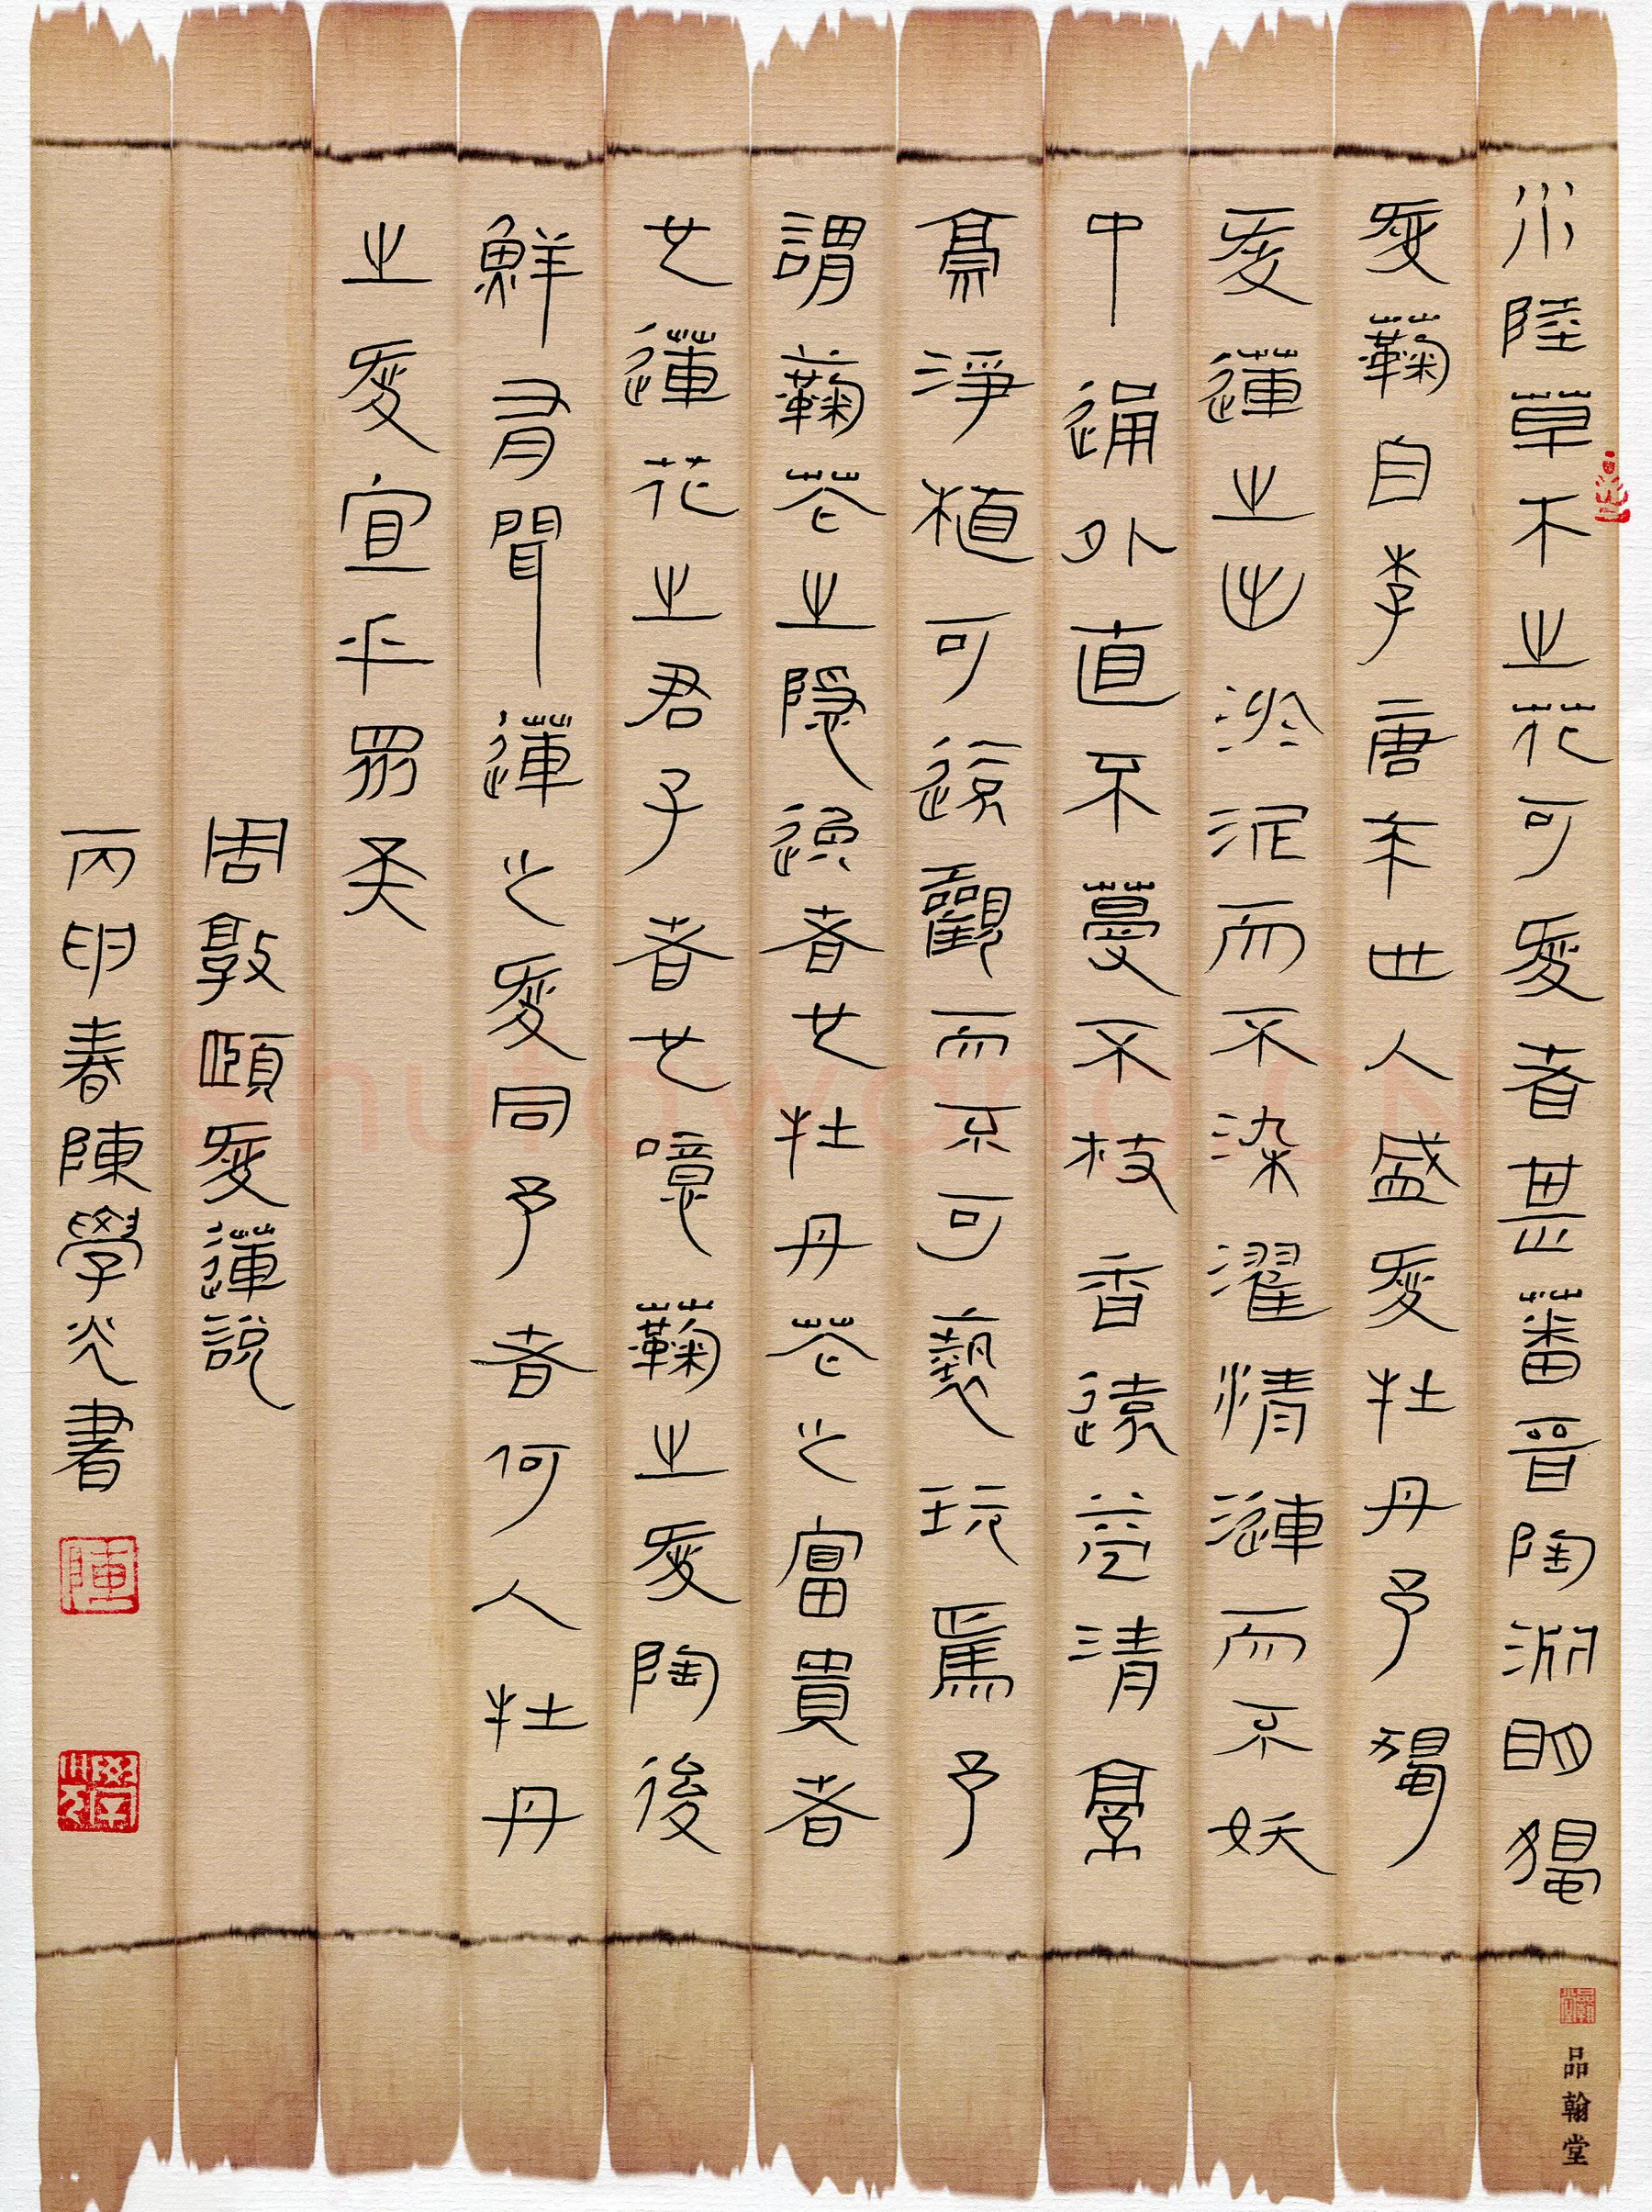 水陸草木之花可愛者甚蕃晉陶淵明獨
愛蘜自李唐來世人盛愛牡丹予獨
愛蓮之出淤泥而不染濯清漣而不妖
中通外直不蔓不枝香遠益清亭
亭淨植可遠觀而不可褻玩焉予
謂蘜花之隱逸者也牡丹花之富貴者
也蓮花之君子者也噫蘜之愛陶後
鮮有聞蓮之愛同予者何人牡丹
之愛宜乎眾矣
周敦頤愛蓮說
丙申春陳學光書
陳
品翰堂